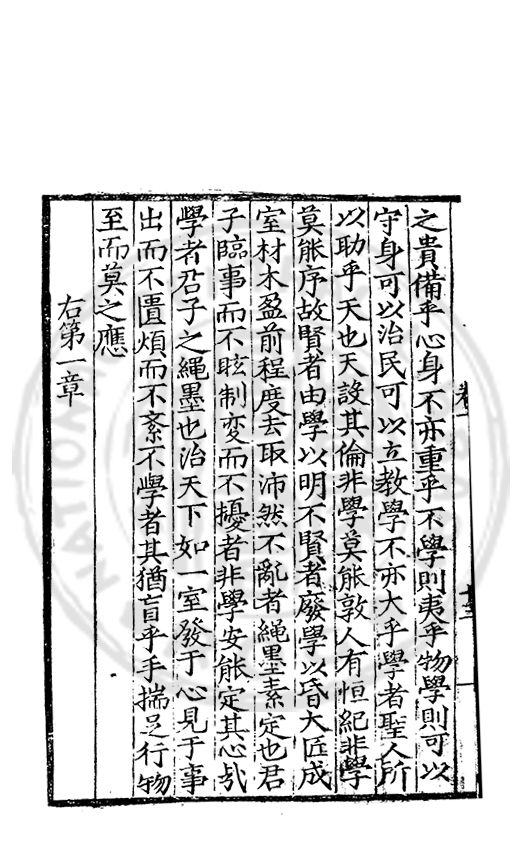 之貴備乎心身不亦重乎不學則夷乎物學則可以
守身可以治民可以立教學不亦大乎學者聖人所
以助乎天也天設其倫非學莫能敦人有恒紀非學
莫能序故賢者由學以明不賢者廢學以昏大匠成
室材木盈前程度去取沛然不亂者繩墨素定也君
子臨事而不眩制変而不擾者非學安能定其心哉
學者君子之繩墨也治天下如一室發于心見于事
出而不匱煩而不紊不學者其猶盲乎手揣足行物
至而莫之應
右第一章